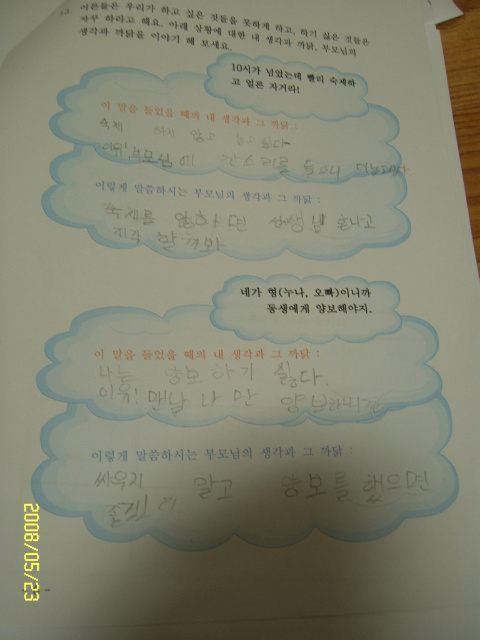 어른들은 우리가 하고 싶은 것들을 못하게 하고, 하기 싫은 것들은
자꾸 하라고 해요. 아래 상황에 대한 내 생각과 까닭, 부모님의
생각과 까닭을 이야기 해 보세요.
10시가 넘었는데 빨리 숙제하
고 얼른 자거라!
이 말을 들었을 때의 내 생각과 그 까닭 :
숙제 하지 않고 놀고 싶다
이유! 부모님에 잔소리를 들으니
이렇게 말씀하시는 부모님의 생각과 그 까닭 :
숙제를 안하면 선생님 혼나고
지각 할까봐
네가 형(누나, 오빠)이니까
동생에게 양보해야지.
이 말을 들었을 때의 내 생각과 그 까닭 :
나는 양보하기 싫다.
이유! 맨날 나만
이렇게 말씀하시는 부모님의 생각과 그 까닭 :
싸우지 말고 양보를 했으면
2008/05/23